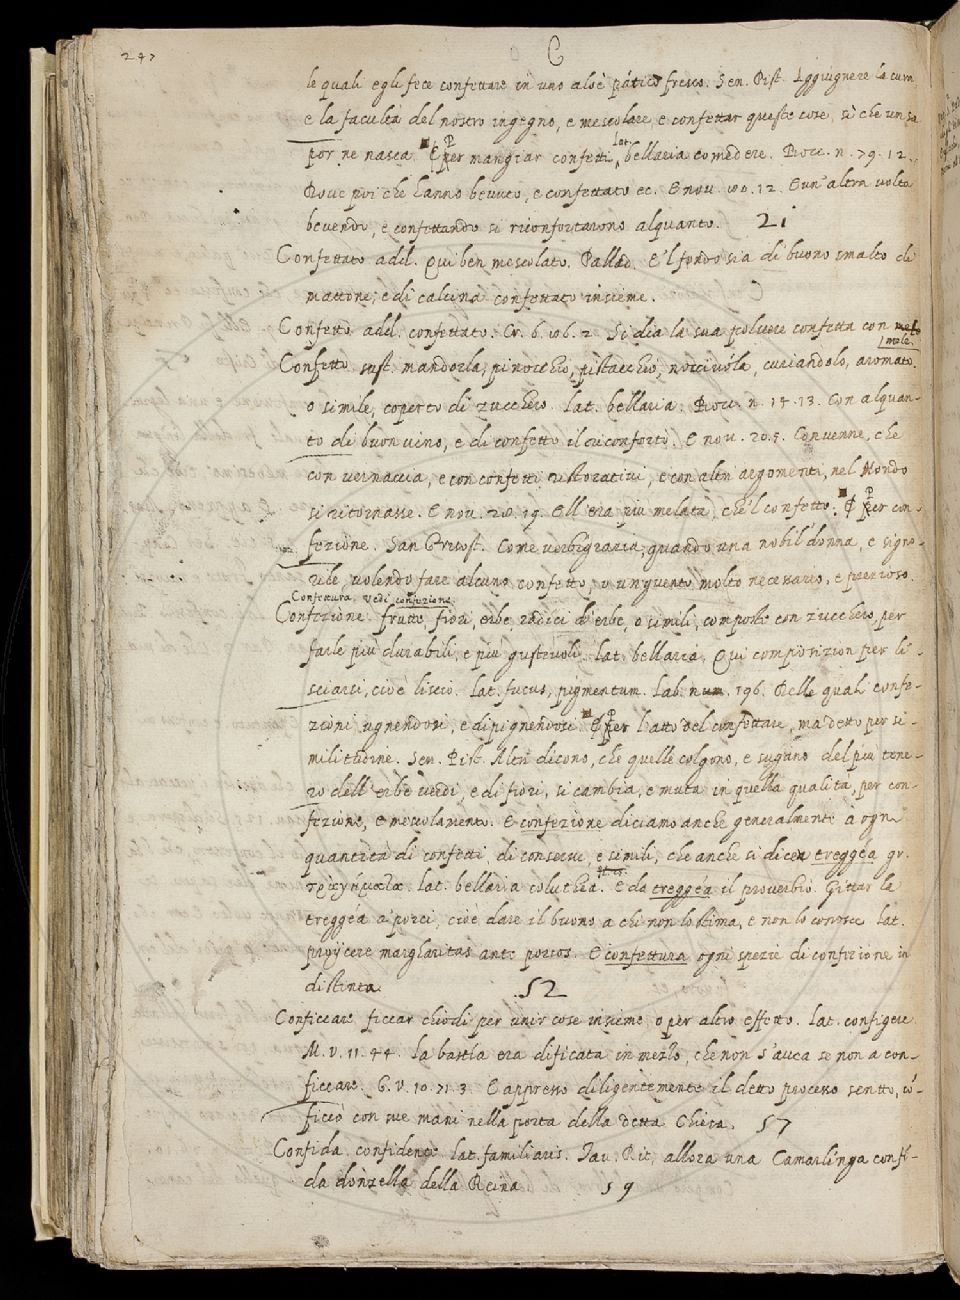 247
C
le quali egli fece confettare in uno aloè pático fresco. Sen. Pist. Aggiugnere la cura
e la faculta del nostro ingegno, e mescolare, e confettar queste cose, si che un sa
por ne nasca. per mangiar confetti, lat. bellaria comedere. Bocc. n. 79. 12.
Dove poi che hanno bevuto, e confettato ec. E nov. 100. 12. E un'altra volta
bevendo, e confettando si riconfortarono alquanto. 21
Confettato add. Qui ben mescolato. Pallad. E'l fondo sia di buono smalto di
mattone, e di calcina confettato insieme.
Confetto add. confettato. Cr. 6. 106. 2. Si dia la sua polvere confetta con mele.
Confetto sust. mandorla, pinocchio, pistacchio, nocciuòla, curiandolo, aromato,
o simile, coperto di zucchero. lat. bellaria. Bocc. n. 14. 13. Con alquan-
to di buon vino, e di confetto il riconfortò. E nov. 20. 5. Convenne, che
con vernaccia, e con confetti ristorativi, e con altri argomenti, nel Mondo
si ritornasse. E nov. 20. 19. Ell'era piu melata, che'l confetto. per con-
fezione. San Grisost. Come verbigrazia, quando una nobil donna, e signo-
rile, volendo fare alcuno confetto, o unguento molto necessario, e prezioso.
Confettura vedi confezione
Confezione frutto, fiori, erbe radici d'erbe, o simili, composte con zucchero, per
farle più durabili, e più gustevoli. lat. bellaria. Qui composizion per li-
sciarsi, cioè liscio. lat. fucus, pigmentum. Lab. num. 196. Delle quali confe-
zioni ugnendosi, e dipignendosi. per l'atto del confettare, ma detto per si-
militudine. Sen. Pist. Altri dicono, che quelle colgono, e sugano del piu tene-
ro dell'erbe verdi, e di fiori, si cambia, e muta in quella qualità, per con-
fezione, e mescolamento. E confezione diciamo anche generalmente à ogni
quantità di confetti, di conserve, e simili, che anche si dicon treggéa gr.
τραγήματα. lat. bellaria colutèa. E da treggéa il proverbio. Gittar la
treggéa a'porci, cioè dare il buono a chi non lo stima, e non lo conosce lat.
proijcere margharitas ante porcos. E confettura ogni spezie di confezione in
distinta. 52
Conficcare ficcar chiodi per unir cose insieme, o per altro effetto. lat. configere
M. V. 11. 44. la bastìa era dificata in merlo, che non s'avea se non a con-
ficcare. G. V. 10. 71. 3. E appresso diligentemente il detto processo scritto, cō-
ficcò con sue mani nella porta della detta Chiesa. 57
Confida confidente lat. familiaris. Tav. Rit. allora una Camarlinga confi-
da donzella della Reina 59